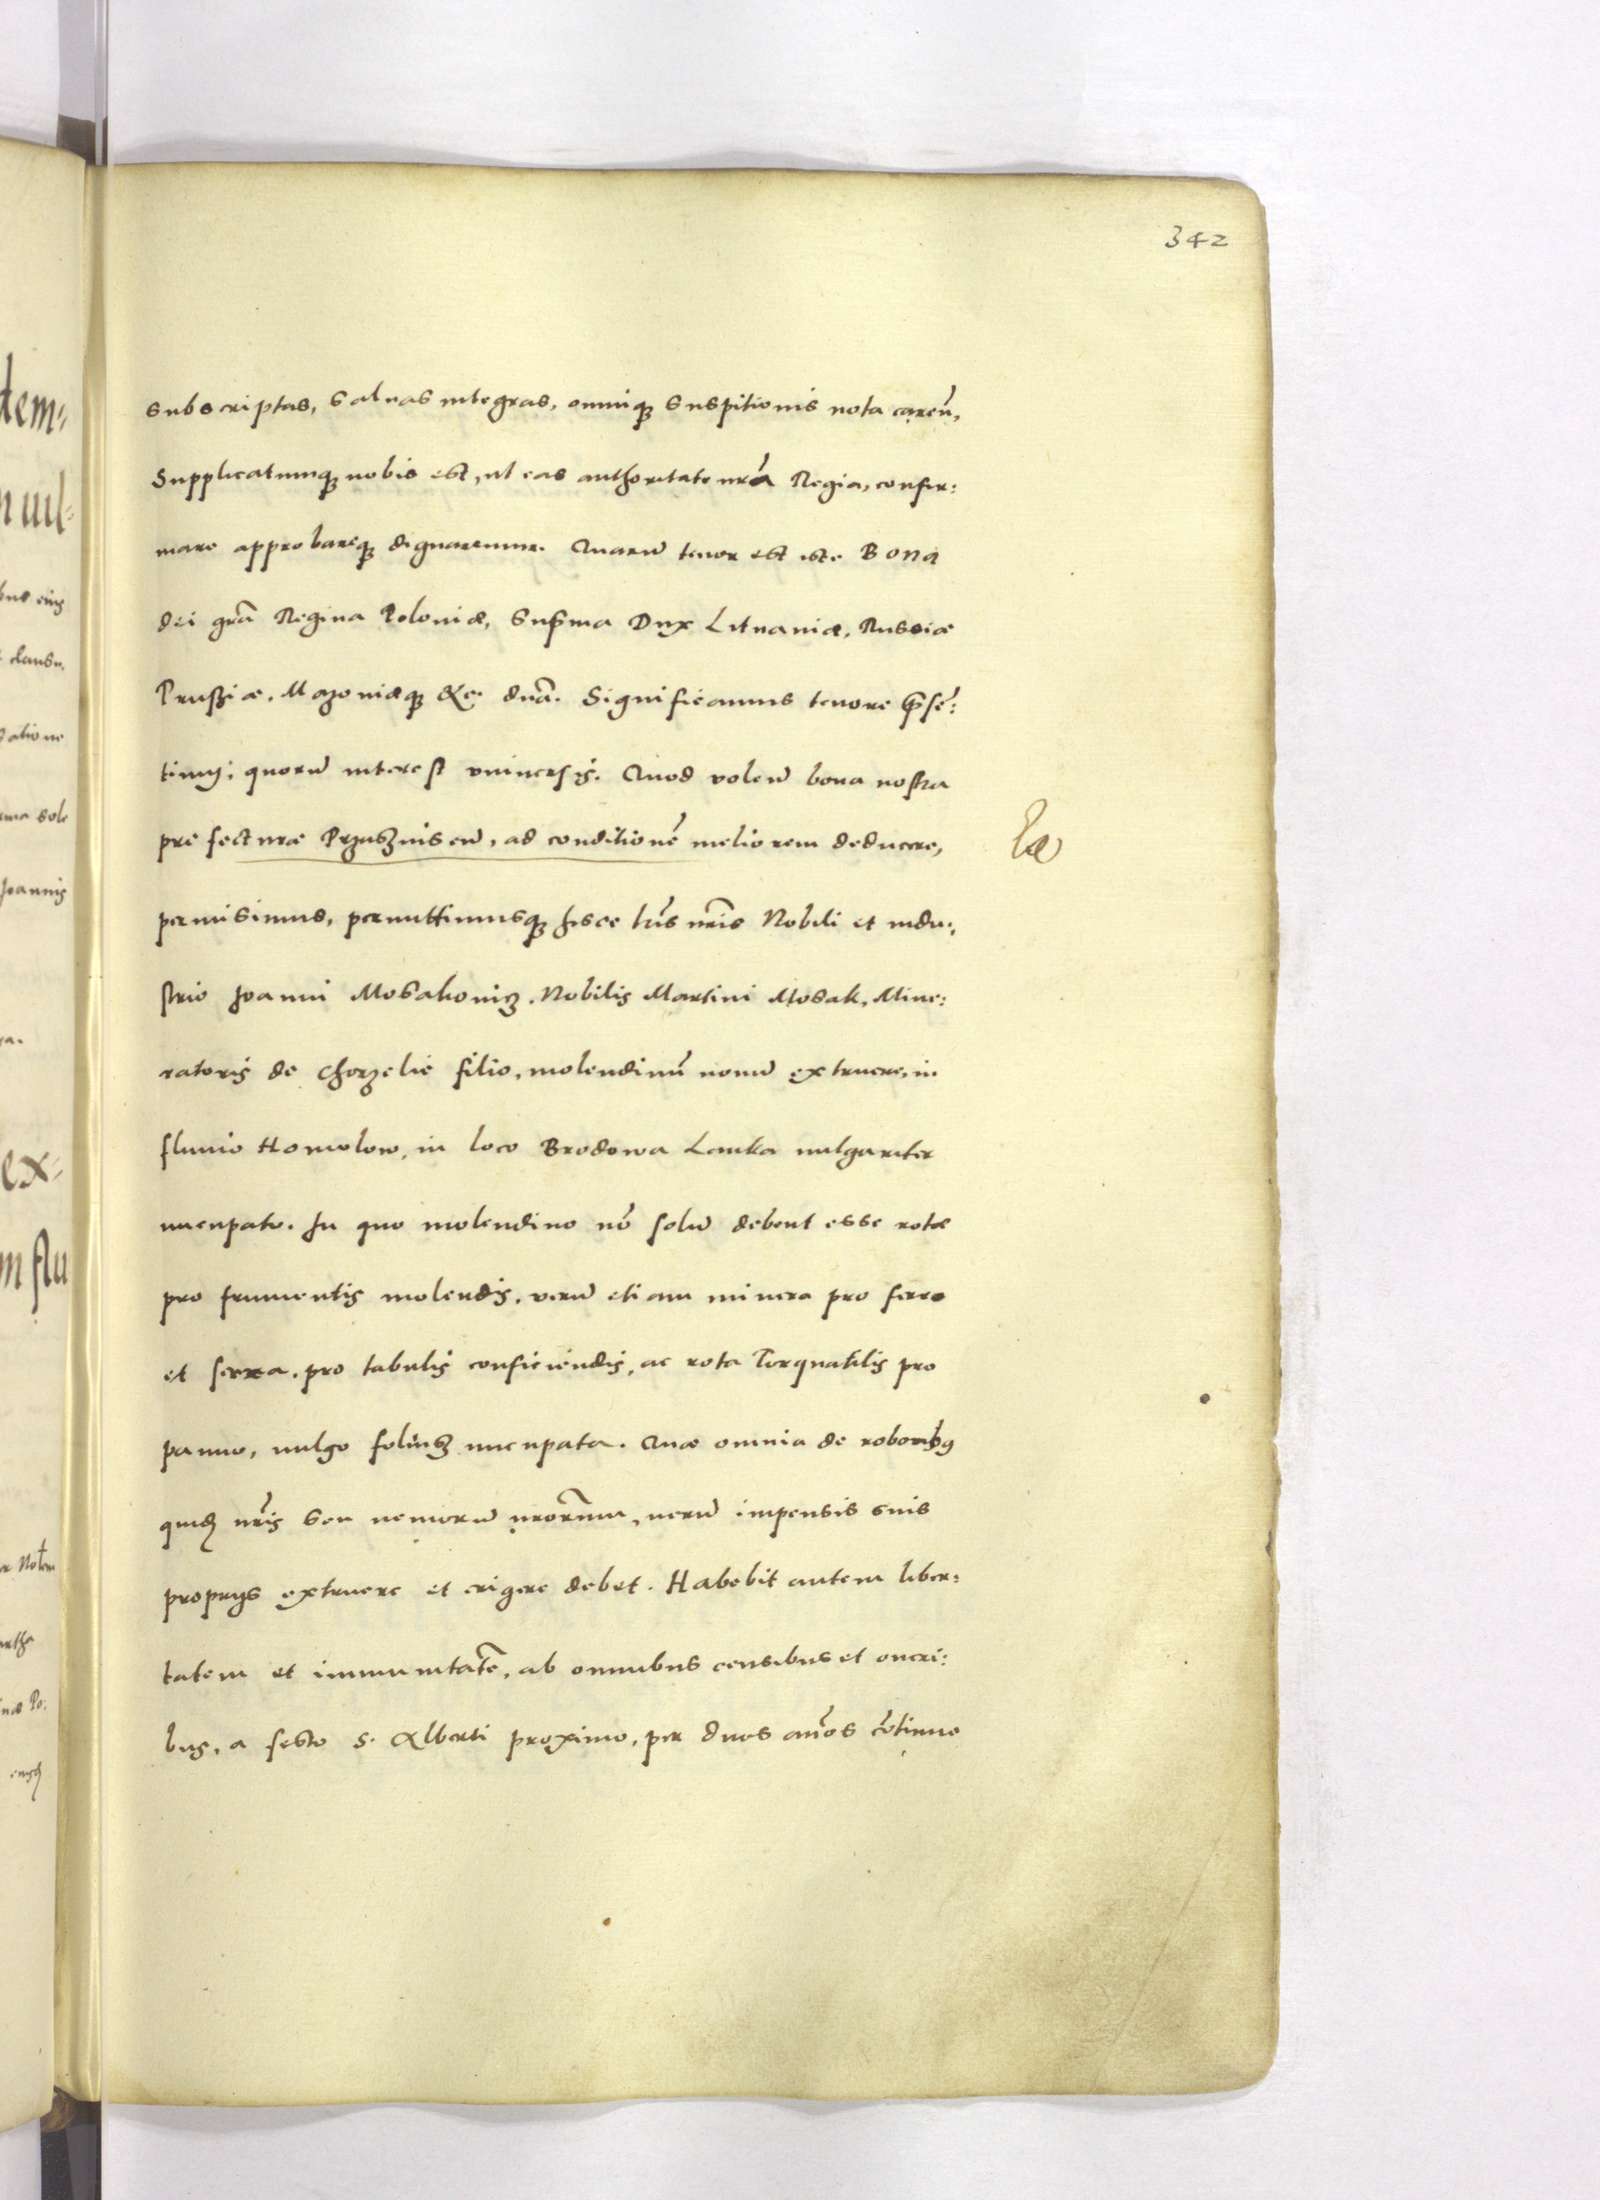 342
subscriptas, saluas integras, omniq₃ suspitionis nota careñ,
Supplicatumq₃ nobis est, ut eas authoritate nrã Regia, confir:
mare approbareq₃ dignaremur. Quarũ tenor est iste Bona
dei grã Regina Poloniæ, Supma Dux Lituaniæ, Russiæ
Prussiæ, Mazoniæq₃ &c. dnã. Significamus tenore p̃sẽ:
tiu₃; quorũ interest vniuersis. Quod volen̄ bona nostra
præfecturæ Przasznisen̄, ad conditionẽ meliorem deducere,
permisimus, permittimusq₃ hisce lr̃is nr̃is Nobili et indu:
strio Joanni Mosakowicz, Nobilis Martini Mosak, Mine:
ratoris de Chorzelie filio, molendinũ nouũ extruere, in
fluuio Homolow, in loco Brodowa Lanka uulgariter
nucupato. In quo molendino nõ solũ debent esse rotæ
pro frumentis molendis, verũ etiam minera pro ferro
et serra, pro tabulis conficiendis, ac rota Torquatilis pro
panno, uulgo folusz nucupata. Quæ omnia de roborib9
quid₃ nr̃is seu nemorũ nrorũm, uerũ impensis suis
proprijs extruere et erigere debet. Habebit autem liber:
tatem et immunitatẽ, ab omnibus censibus et oneri:
bus, a festo S. Alberti proximo, per duos an̄os cõtinue